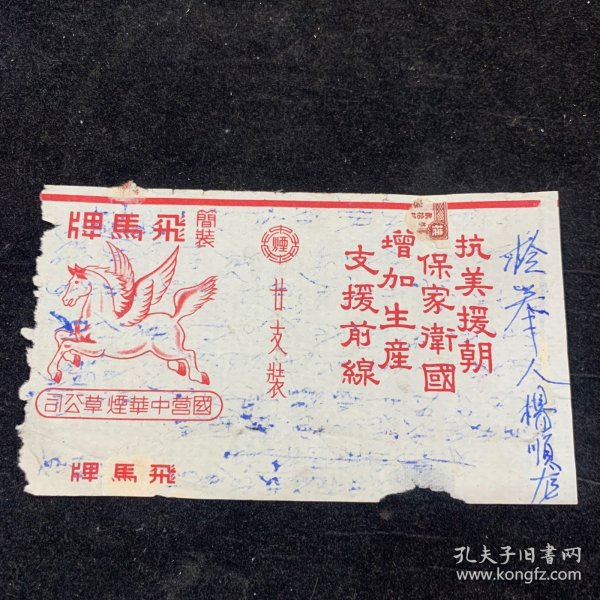 抗美援朝
保家衛國
增加生產
支援前線
煙
廿支裝
簡裝
飛馬牌
國營中華煙草公司
飛馬牌
人楊順
孔夫子旧书网
www.kongfz.com